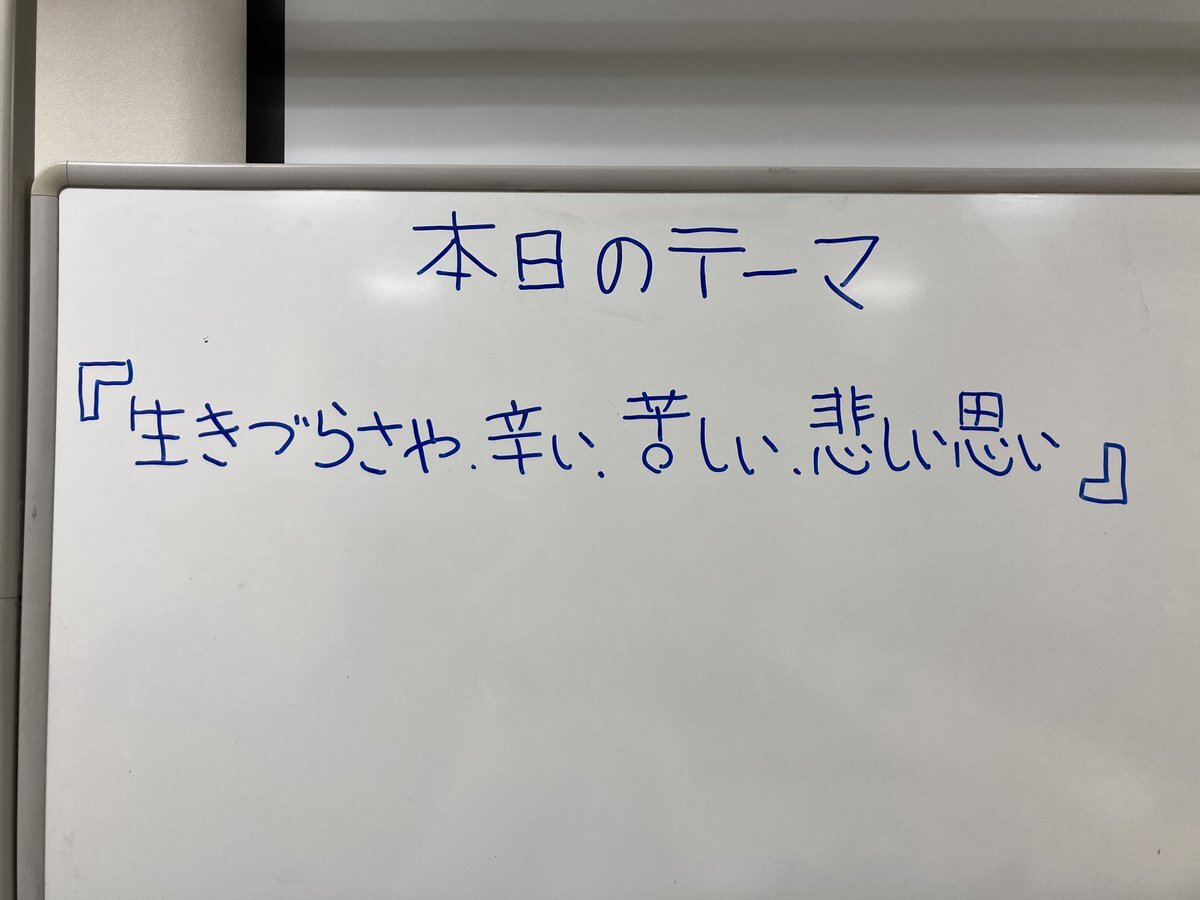 本日のテーマ
『生きづらさや、辛い、苦しい、悲しい思い』